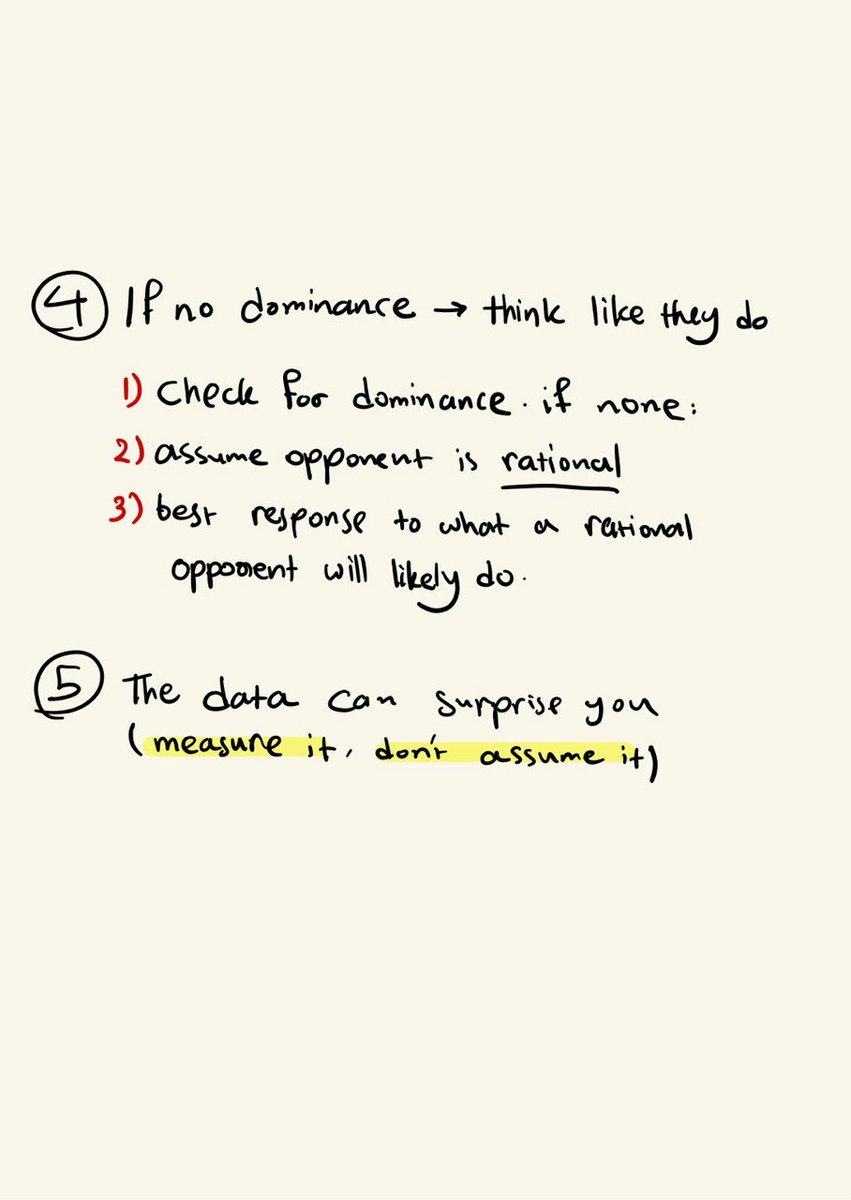 ④ If no dominance → think like they do
1) Check for dominance. if none:
2) assume opponent is rational
3) best response to what a rational
opponent will likely do.
⑤ The data can surprise you
(measure it, don't assume it)